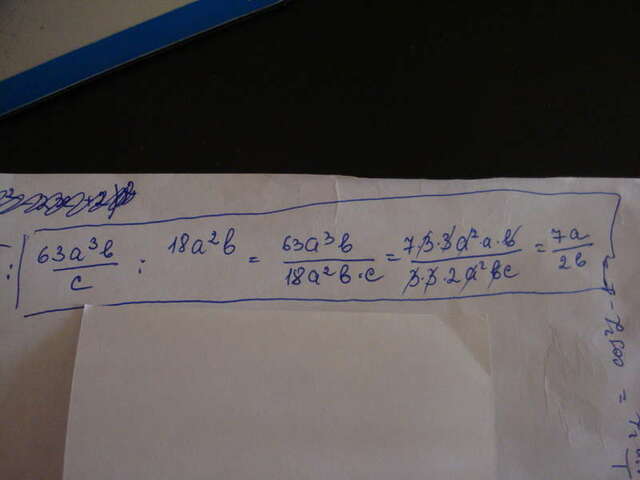 : 63a³b/c : 18a²b = 63a³b/18a²b·c = 7·3·3a²·a·b/3·3·2a²bc = 7a/2b